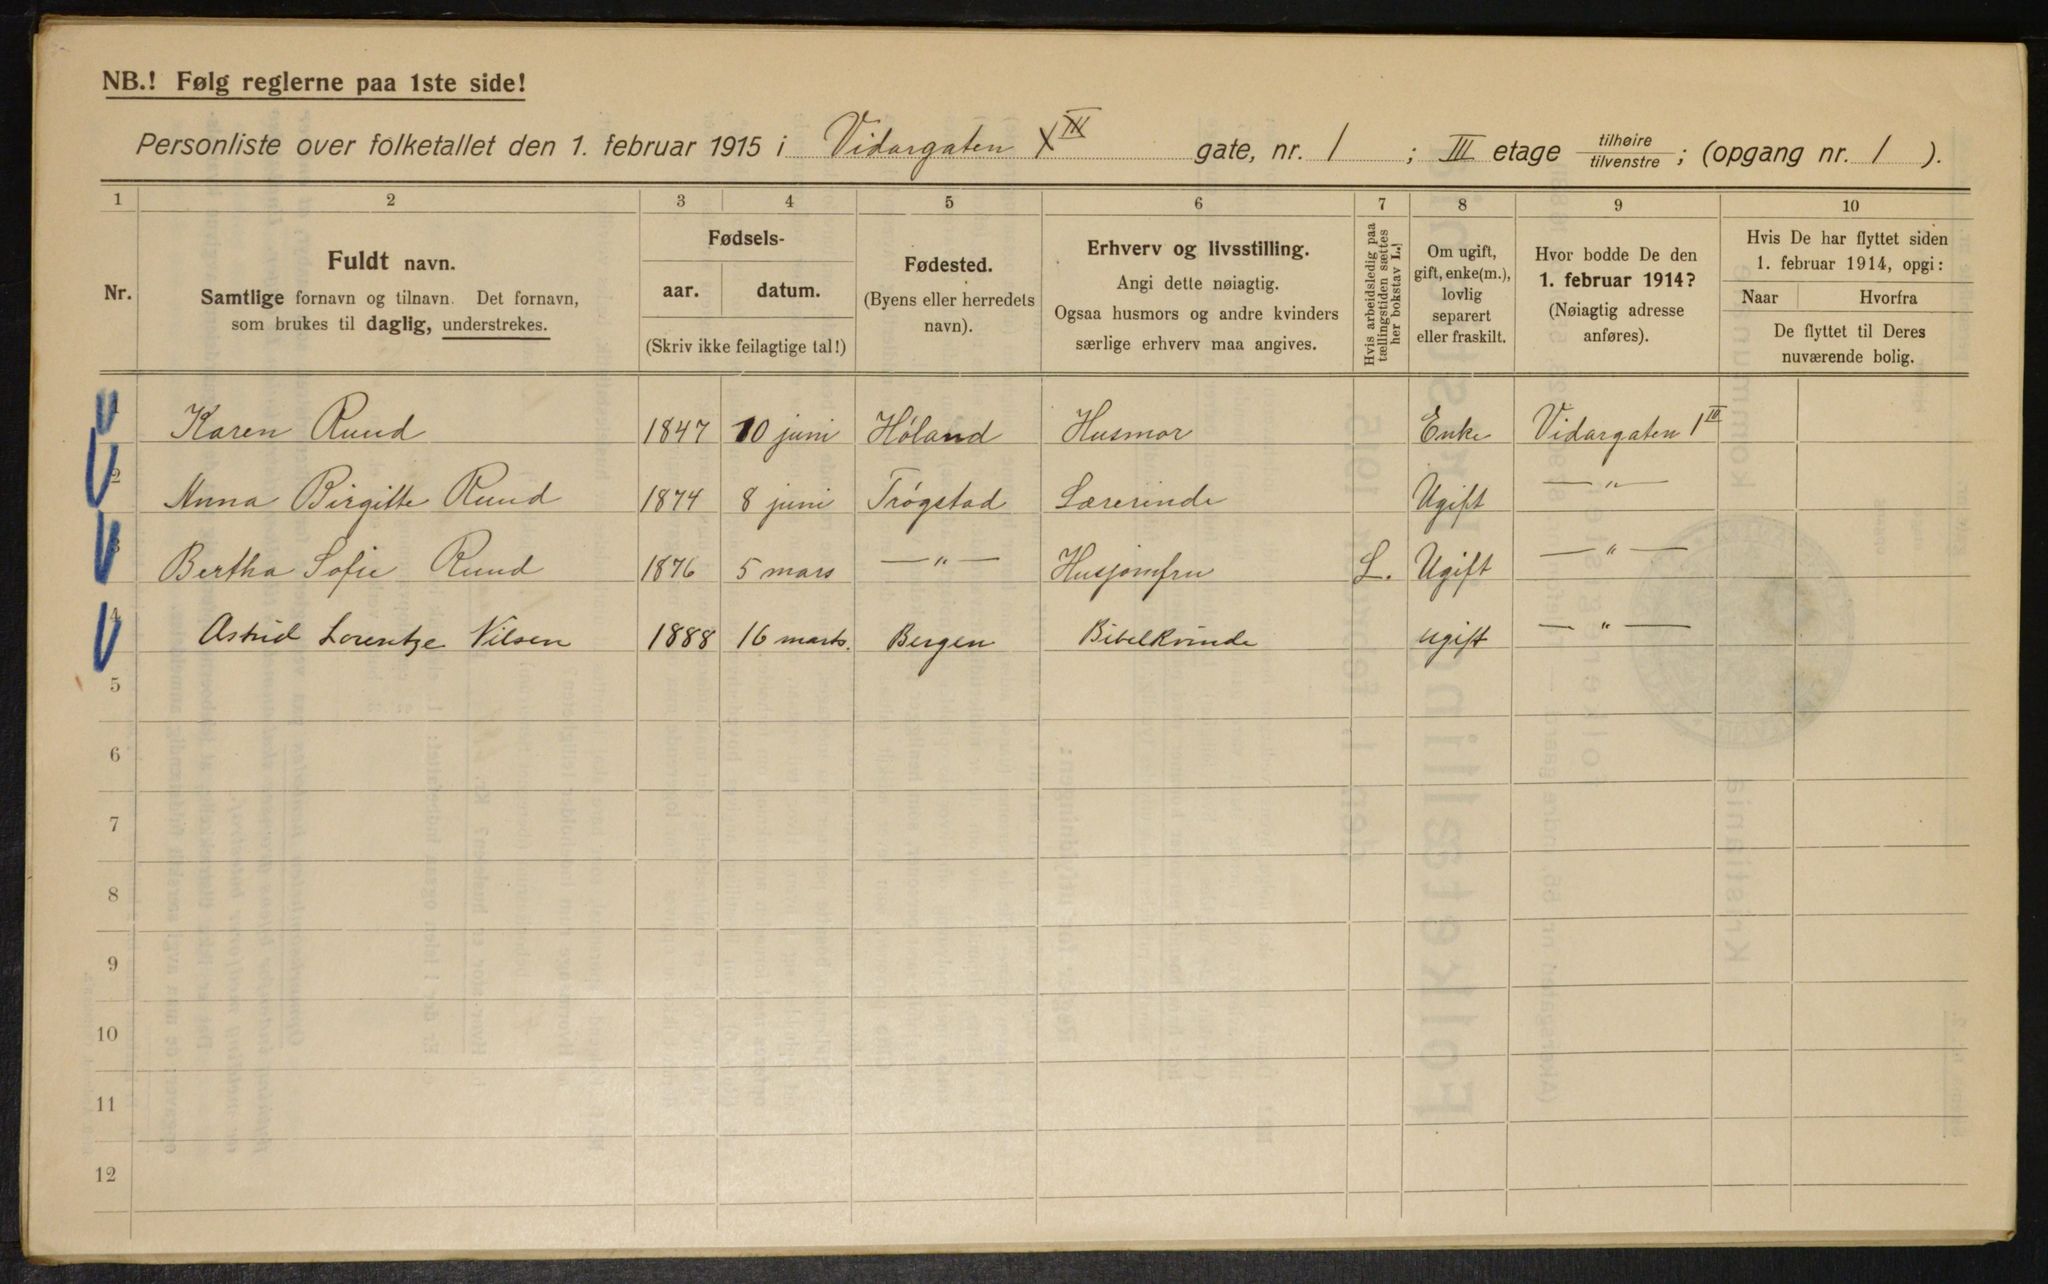 NB.! Følg reglerne paa 1ste side!
Personliste over folketallet den 1. februar 1915 i Vidargaten gate, nr. 1 ; III etage tilhøire / tilvenstre ; (opgang nr. 1 ).
1 2 3 4 5 6 7 8 9 10
Nr.
Fuldt navn.
Samtlige fornavn og tilnavn. Det fornavn,
som brukes til daglig, understrekes.
Fødsels-
aar. datum.
(Skriv ikke feilagtige tal!)
Fødested.
(Byens eller herredets
navn).
Erhverv og livsstilling.
Angi dette nøiagtig.
Ogsaa husmors og andre kvinders
særlige erhverv maa angives.
Hvis arbeidsledig paa
tællingstiden sættes
her bokstav L.!
Om ugift,
gift, enke(m.),
lovlig
separert
eller fraskilt.
Hvor bodde De den
1. februar 1914?
(Nøiagtig adresse
anføres).
Hvis De har flyttet siden
1. februar 1914, opgi:
Naar Hvorfra
De flyttet til Deres
nuværende bolig.
1 Karen Ruud 1847 10 juni Høland Husmor Enke Vidargaten 1 III
2 Anna Birgitte Ruud 1874 8 juni Trøgstad Lærerinde Ugift — " —
3 Bertha Sofie Ruud 1876 5 mars — " — Husjomfru L. Ugift — " —
4 Astrid Lorentze Nilsen 1888 16 marts. Bergen Bibelkvinde ugift — " —
5
6
7
8
9
10
11
12